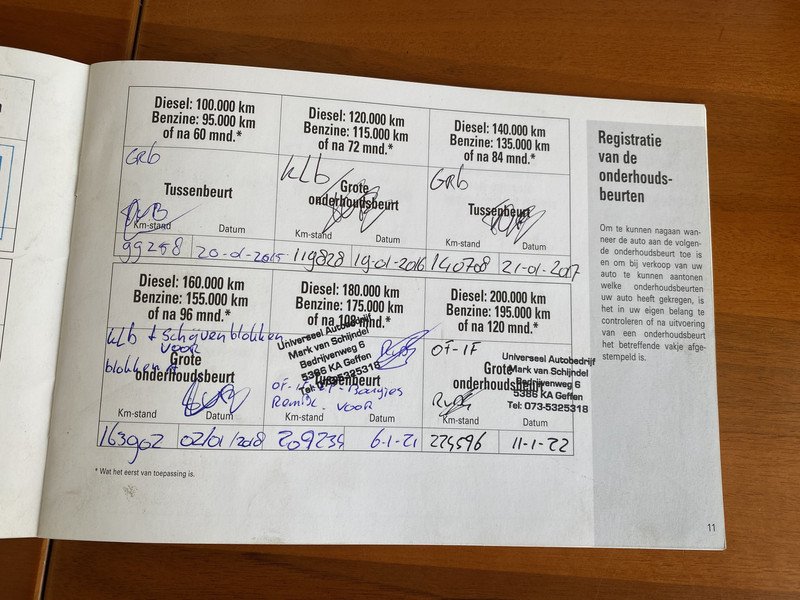 Diesel: 100.000 km
Benzine: 95.000 km
of na 60 mnd.*
GRB
Tussenbeurt
Km-stand Datum
99258 20-01-2015
Diesel: 120.000 km
Benzine: 115.000 km
of na 72 mnd.*
KLB
Grote
onderhoudsbeurt
Km-stand Datum
119828 19-01-2016
Diesel: 140.000 km
Benzine: 135.000 km
of na 84 mnd.*
GRB
Tussenbeurt
Km-stand Datum
140708 21-01-2017
Diesel: 160.000 km
Benzine: 155.000 km
of na 96 mnd.*
KLB + Schijven blokken
VOOR
blokken A
Grote
onderhoudsbeurt
Km-stand Datum
163902 02/01/2018
Diesel: 180.000 km
Benzine: 175.000 km
of na 108 mnd.*
Universeel Autobedrijf
Mark van Schijndel
Bedrijvenweg 6
5386 KA Geffen
Tel: 073-5325318
Tussenbeurt
OF-IF-Bougies
Remblk. VOOR
Km-stand Datum
209234 6-1-21
Diesel: 200.000 km
Benzine: 195.000 km
of na 120 mnd.*
OF-IF
Grote
onderhoudsbeurt
Universeel Autobedrijf
Mark van Schijndel
Bedrijvenweg 6
5386 KA Geffen
Tel: 073-5325318
Km-stand Datum
224596 11-1-22
* Wat het eerst van toepassing is.
Registratie
van de
onderhouds-
beurten
Om te kunnen nagaan wan-
neer de auto aan de volgen-
de onderhoudsbeurt toe is
en om bij verkoop van uw
auto te kunnen aantonen
welke onderhoudsbeurten
uw auto heeft gekregen, is
het in uw eigen belang te
controleren of na uitvoering
van een onderhoudsbeurt
het betreffende vakje afge-
stempeld is.
11